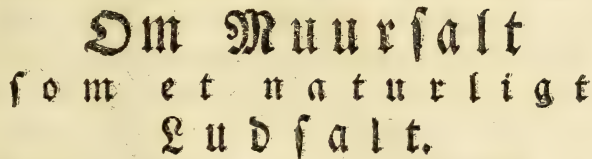 Om Muurſalt
ſom et naturligt
Ludſalt.